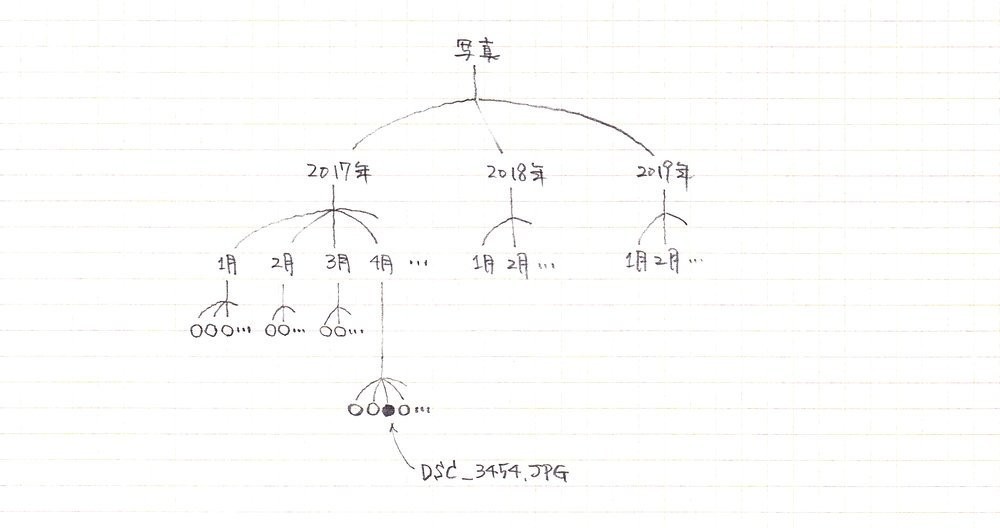 写真
2017年 2018年 2019年
1月 2月 3月 4月 … 1月 2月 … 1月 2月 …
○○○… ○○… ○○…
○○●○…
DSC_3454.JPG